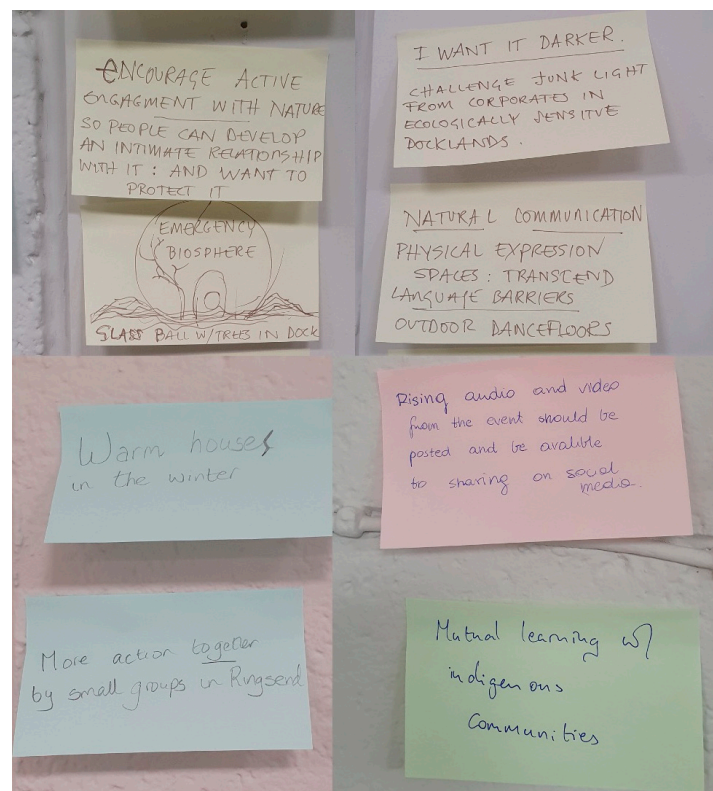 ENCOURAGE ACTIVE
ENGAGMENT WITH NATURE
SO PEOPLE CAN DEVELOP
AN INTIMATE RELATIONSHIP
WITH IT : AND WANT TO
PROTECT IT
EMERGENCY
BIOSPHERE
GLASS BALL W/TREES IN DOCK
I WANT IT DARKER.
CHALLENGE JUNK LIGHT
FROM CORPORATES IN
ECOLOGICALLY SENSITVE
DOCKLANDS.
NATURAL COMMUNICATION
PHYSICAL EXPRESSION
SPACES : TRANSCEND
LANGUAGE BARRIERS
OUTDOOR DANCEFLOORS
Warm houses
in the winter
Rising audio and video
from the event should be
posted and be avalible
to sharing on social
media.
More action together
by small groups in Ringsend
Mutual learning w/
indigenous
Communities